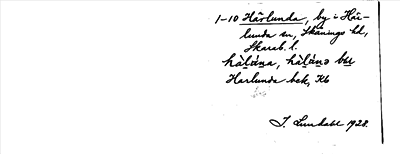 1-10 Härlunda, by i Här-
lunda sn, Skånings hd,
Skarab. l.
Harlunda bek, Kb
J. Lundahl 1928.